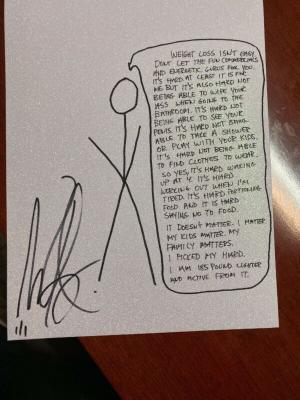 WEIGHT LOSS ISN'T EASY.
DON'T LET THE FUN COMMERCIALS
AND ENERGETIC GURUS FOOL YOU.
IT'S HARD AT LEAST IT IS FOR
ME BUT IT'S ALSO HARD NOT
BEING ABLE TO WIPE YOUR
ASS WHEN GOING TO THE
BATHROOM. IT'S HARD NOT
BEING ABLE TO SEE YOUR
PENIS. IT'S HARD NOT BEING
ABLE TO TAKE A SHOWER
OR PLAY WITH YOUR KIDS.
IT'S HARD NOT BEING ABLE
TO FIND CLOTHES TO WEAR.
SO YES, IT'S HARD WAKING
UP AT 4. IT'S HARD
WORKING OUT WHEN I'M
TIRED. IT'S HARD PORTIONING
FOOD AND IT IS HARD
SAYING NO TO FOOD.
IT DOESN'T MATTER. I MATTER
MY KIDS MATTER. MY
FAMILY MATTERS.
I PICKED MY HARD.
I AM 185 POUND LIGHTER
AND ACTIVE FROM IT.